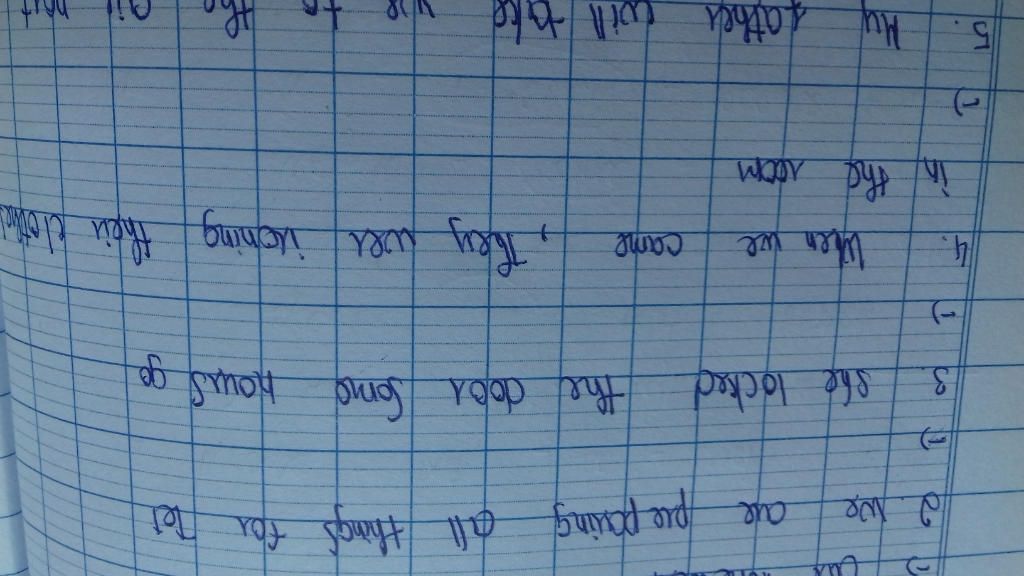 -)
2. We are preparing all things for Tet
-)
3. She locked the door some hours go
-)
4. When we came , They wer ironing their clothes
in the room
-)
5. My father will take